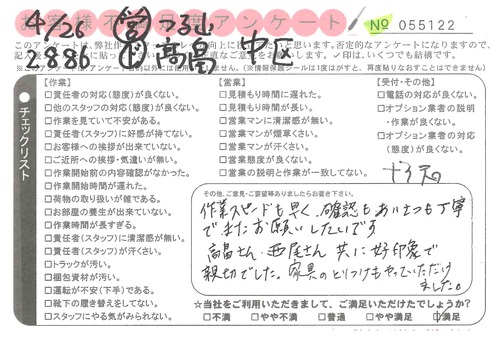 お客様不満足度アンケート
No 055122
4/26 営 つるい
2886 士 高畠 中区
このアンケートは、弊社作
向上に
と思います。否定的なアンケートになりますので、
です。✓印は、いくつでも結構です。
には使用しません。(※情報保護シールは1度はがすと、再度貼りなおすことはできません)
チェックリスト
【作業】
□責任者の対応(態度)が良くない。
□他のスタッフの対応(態度)が良くない。
□作業を見ていて不安がある。
□責任者(スタッフ)に好感が持てない。
□お客様への挨拶が出来ていない。
□ご近所への挨拶・気遣いが無い。
□作業開始前の内容確認がなかった。
□作業開始時間が遅れた。
□荷物の取り扱いが雑である。
□お部屋の養生が出来ていない。
□作業時間が長すぎる。
□責任者(スタッフ)に清潔感が無い。
□責任者(スタッフ)が汗くさい。
□トラックが汚い。
□梱包資材が汚い。
□運転が不安(下手)である。
□靴下の履き替えをしてない。
□スタッフにやる気がみられない。
【営業】
□見積もり時間に遅れた。
□見積もり時間が長い。
□営業マンに清潔感が無い。
□営業マンが煙草くさい。
□営業マンが汗くさい。
□営業態度が良くない。
□営業の説明と作業が一致してない。
【受付・その他】
□電話の対応が良くない。
□オプション業者の説明
・作業が良くない。
□オプション業者の対応
(態度)が良くない。
その他、ご意見・ご要望等ありましたらお書き下さい。
作業スピードも早く、確認もあいさつも丁寧
でまたお願いしたいです
高畠さん、西尾さん 共に好印象で
親切でした。家具のとりつけもやっていただけ
ました。
☆当社をご利用いただきまして、ご満足いただけたでしょうか?
□不満 □やや不満 □普通 □やや満足 □満足